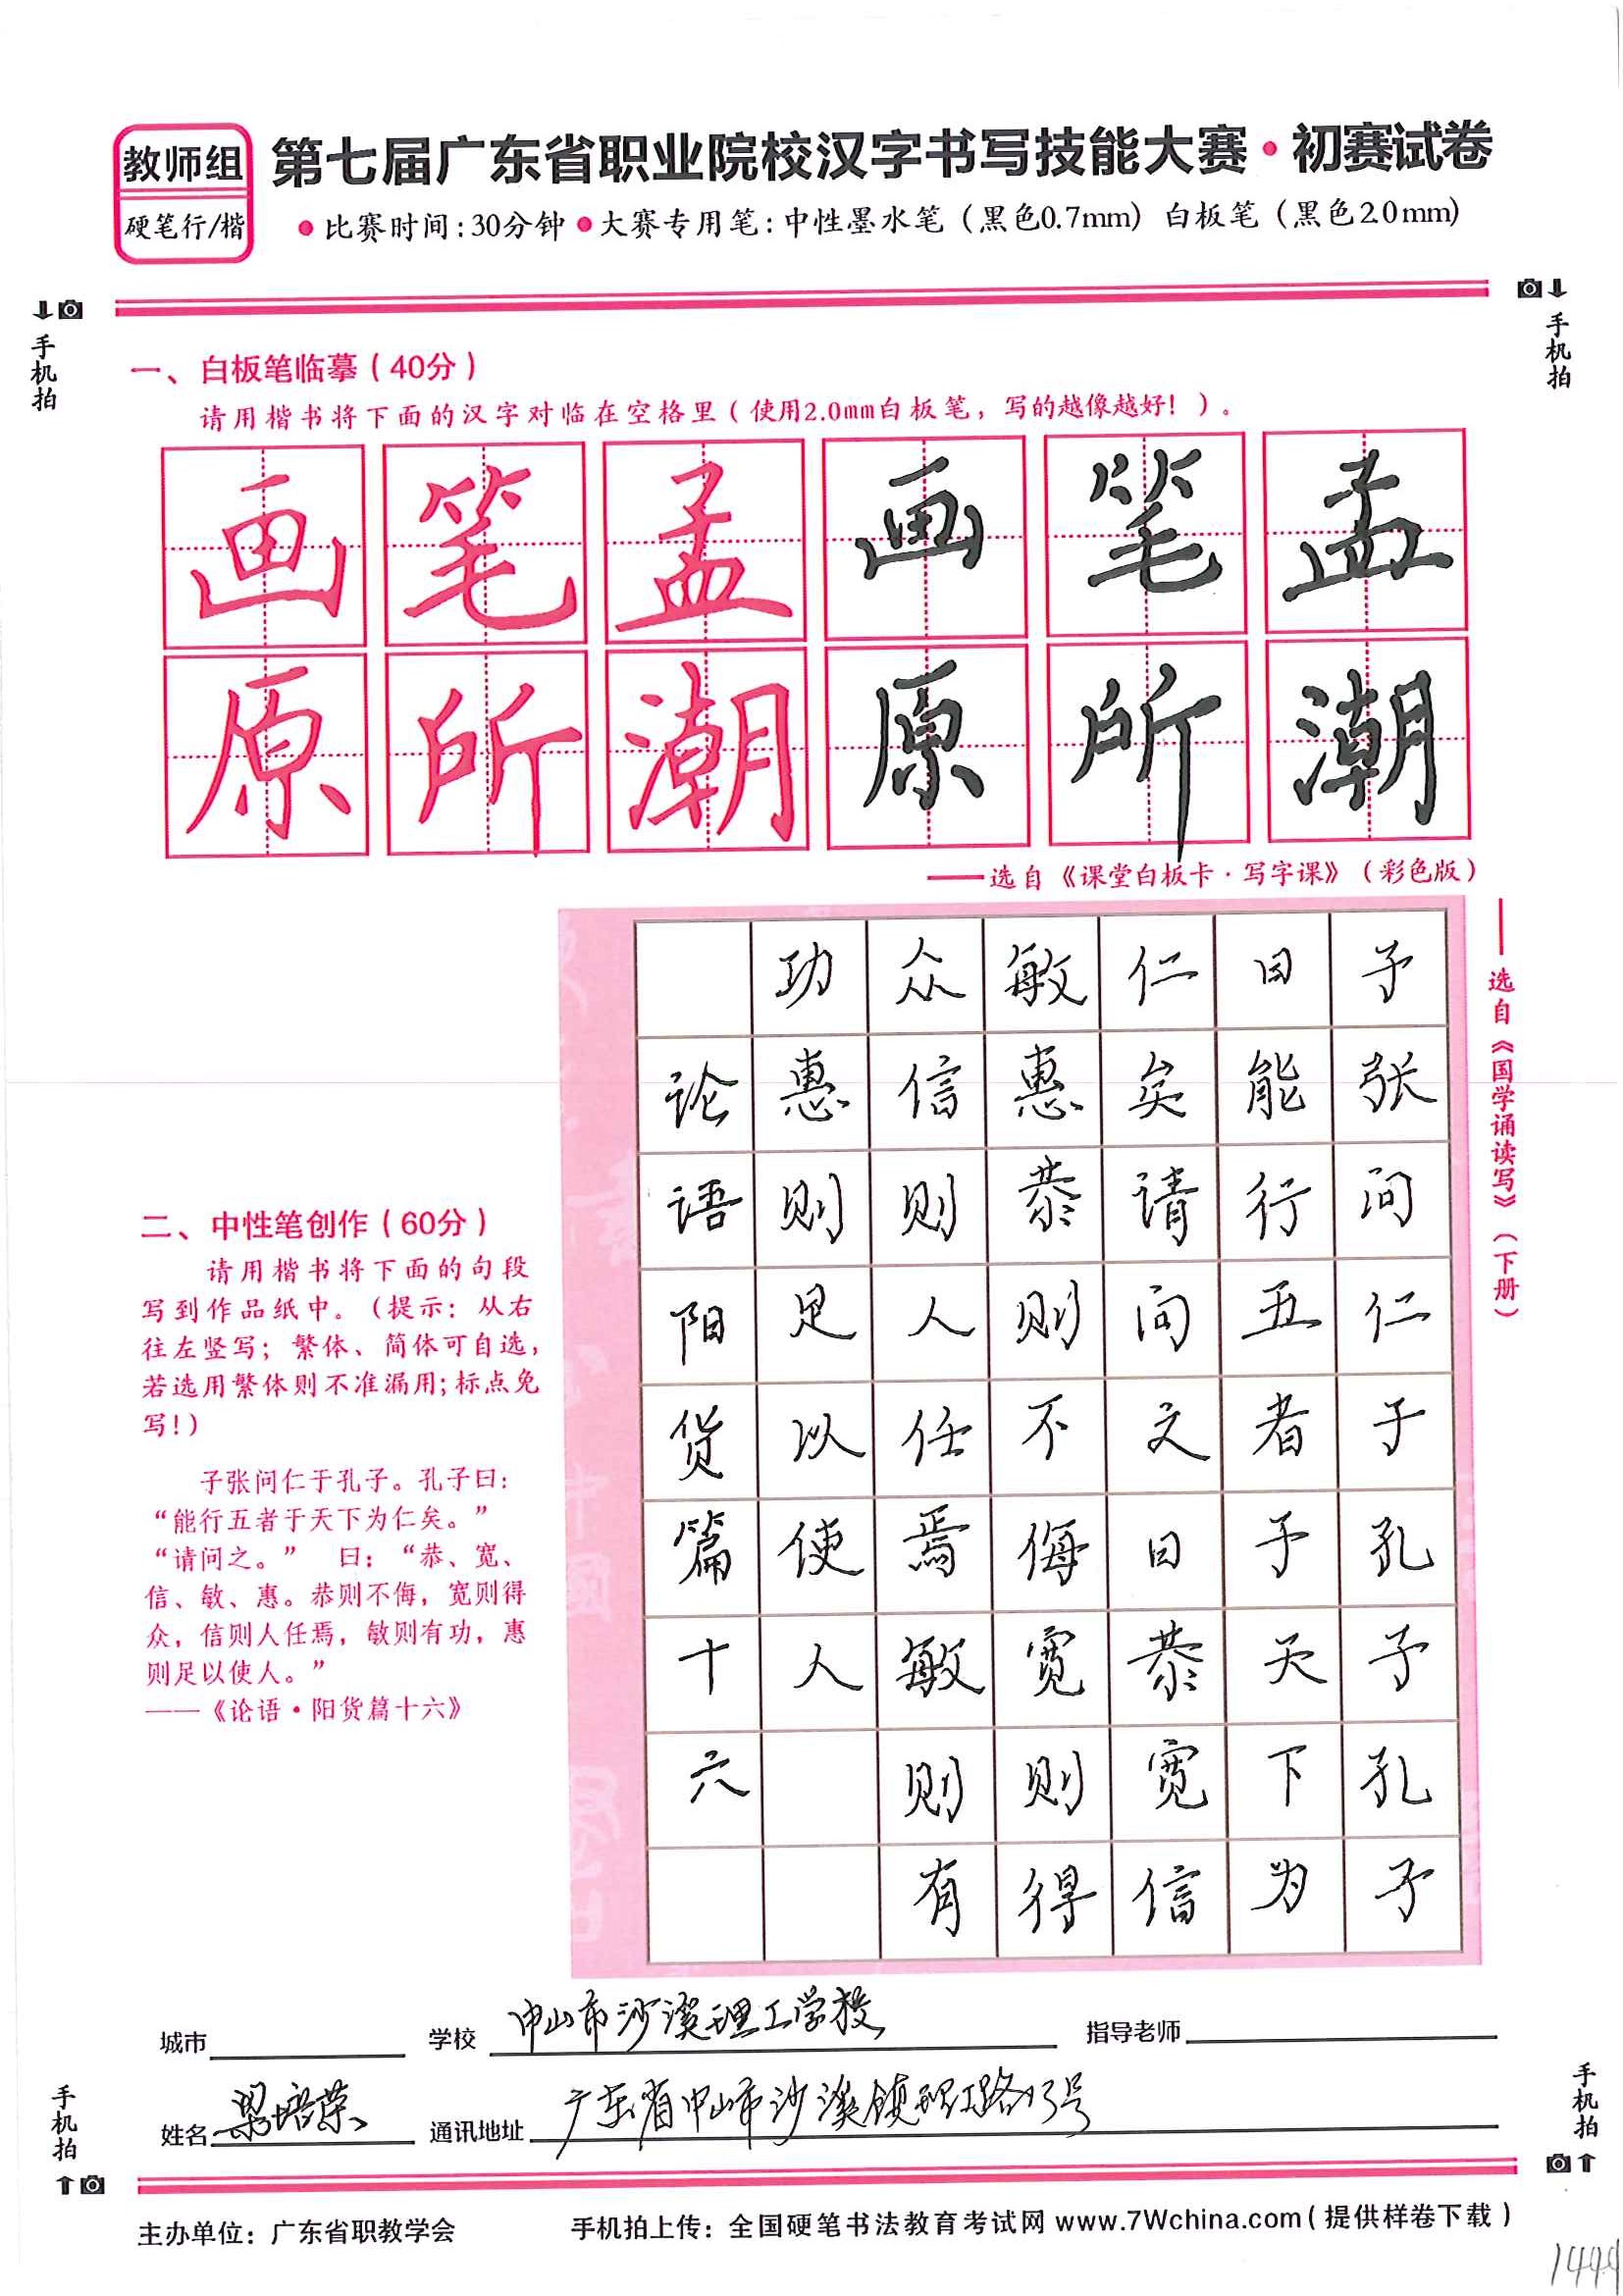 教师组
硬笔行/楷
第七届广东省职业院校汉字书写技能大赛·初赛试卷
●比赛时间:30分钟●大赛专用笔:中性墨水笔(黑色0.7mm) 白板笔(黑色2.0mm)
手机拍
手机拍
一、白板笔临摹(40分)
请用楷书将下面的汉字对临在空格里(使用2.0mm白板笔,写的越像越好!)。
画笔孟画笔孟
原所潮原所潮
——选自《课堂白板卡·写字课》(彩色版)
——选自《国学诵读写》(下册)
子张问仁子孔子孔子
曰能行五者于天下为
仁矣请问文曰恭宽信
敏惠恭则不侮宽则得
众信则人任焉敏则有
功惠则足以使人
论语阳货篇十六
二、中性笔创作(60分)
请用楷书将下面的句段
写到作品纸中。(提示:从右
往左竖写;繁体、简体可自选,
若选用繁体则不准漏用;标点免
写!)
子张问仁于孔子。孔子曰:
“能行五者于天下为仁矣。”
“请问之。” 曰:“恭、宽、
信、敏、惠。恭则不侮,宽则得
众,信则人任焉,敏则有功,惠
则足以使人。”
——《论语·阳货篇十六》
城市 学校 中山市沙溪理工学校 指导老师
姓名 梁培荣 通讯地址 广东省中山市沙溪镇理工路13号
手机拍
手机拍
主办单位:广东省职教学会 手机拍上传:全国硬笔书法教育考试网 www.7Wchina.com(提供样卷下载)